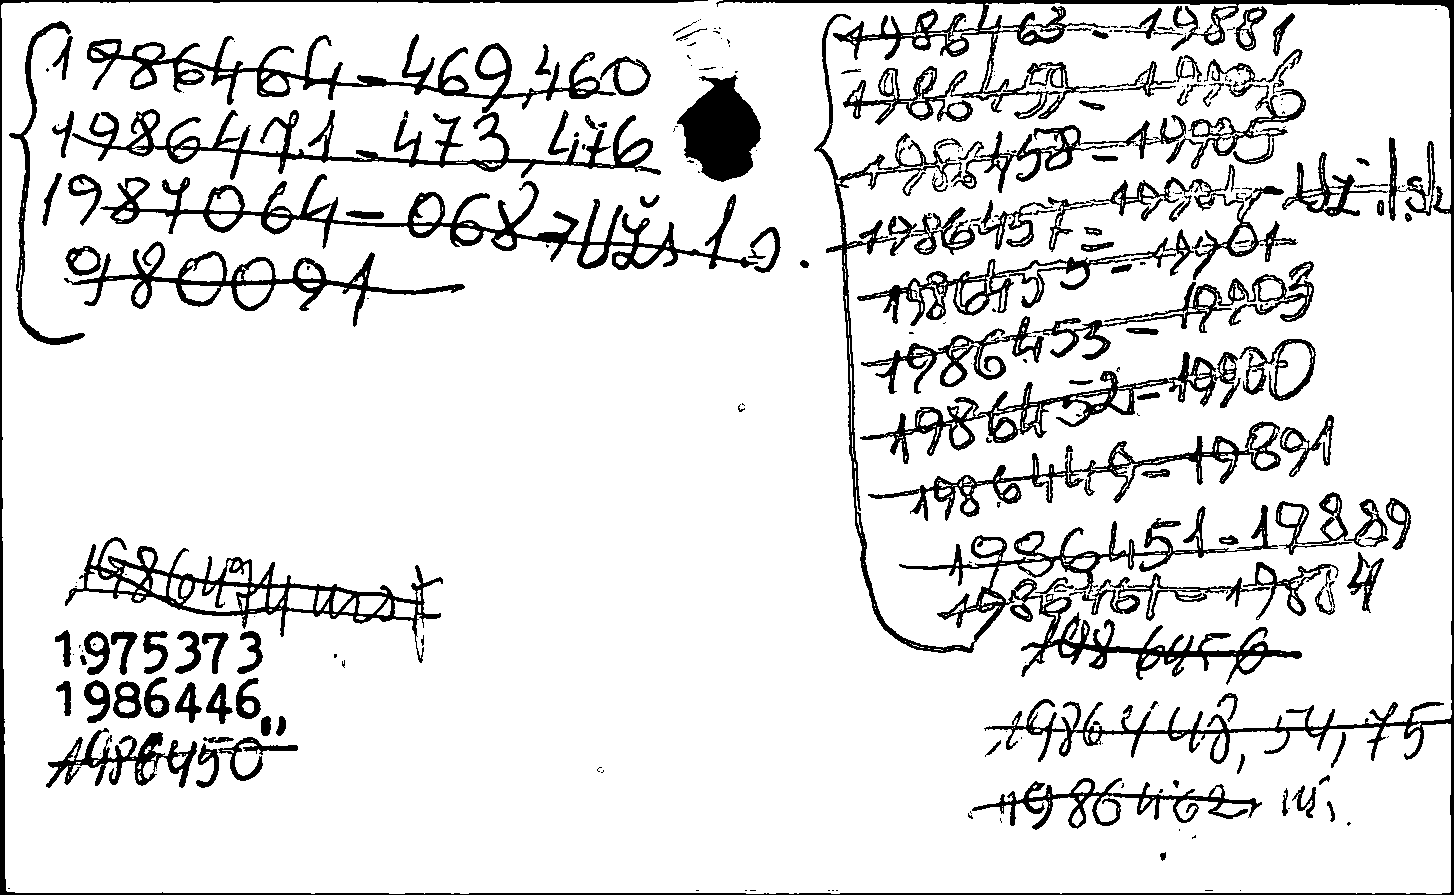 1986464-469,460
1986471-473,476
1987064-068-Užs.1.
980091
1986474
1975373
1986446,,
1986450
1986463-19881
1986459-19906
1986458-19905
1986457-19904-Už.1.sk
1986455-19901
1986453-19903
1986452-19900
1986449-19891
1986451-19889
1986461-19884
1986456
1986448,54,75
1986462